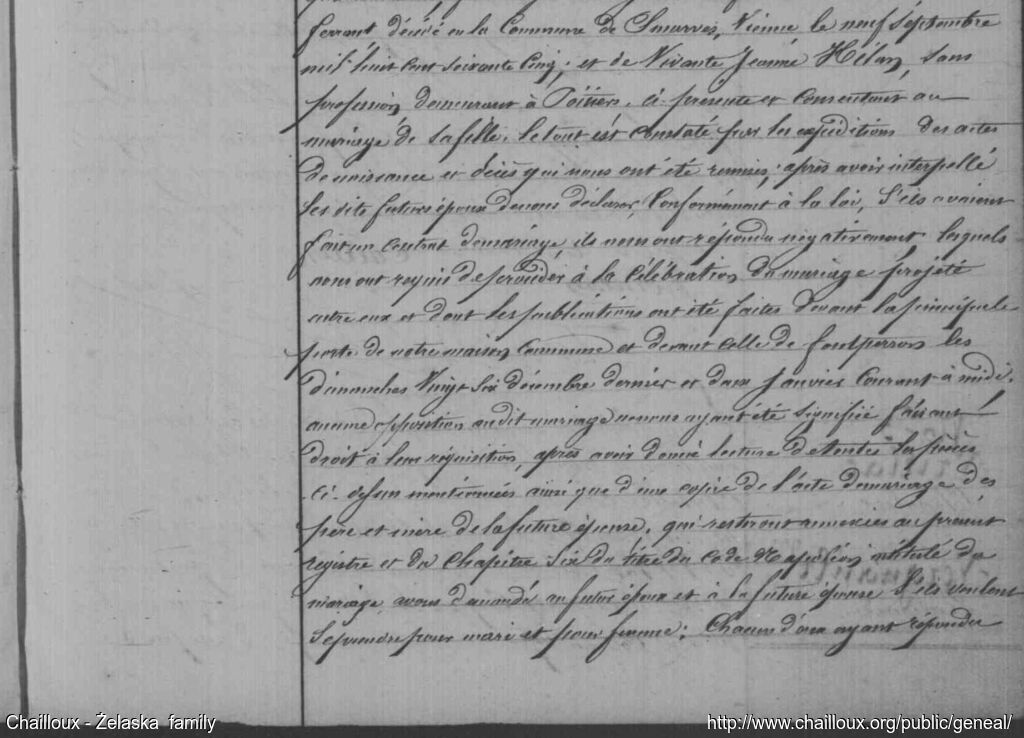 ferrant décédé en la Commune de Smarves, Vienne le neuf Septembre
mil huit cent soixante cinq; et de Vivante Jeanne Hélan, sans
profession demeurant à Poitiers, ci présente et consentant au
mariage de sa fille. le tout est constaté par les expéditions des actes
de naissance et décès qui nous ont été remises; après avoir interpellé
les dits futurs époux de nous déclarer, Conformément à la loi, S'ils avaient
fait un contrat de mariage, ils nous ont répondu négativement, lesquels
nous ont requis de procéder à la Célébration du mariage projeté
entre eux et dont les publications ont été faites devant la principale
porte de notre maison Commune et devant celle de fontperron les
dimanches Vingt Six décembre dernier et deux Janvier Courant à midi.
aucune opposition audit mariage ne nous ayant été signifiée faisant
droit à leur réquisition, après avoir donné lecture de toutes les pièces
ci-dessus mentionnées ainsi que d'une copie de l'acte de mariage des
père et mère de la future épouse, qui resteront annexées au présent
registre et du Chapitre Six du titre du Code Napoléon intitulé du
mariage avons demandé au futur époux et à la future épouse S'ils veulent
Se prendre pour mari et pour femme; Chacun d'eux ayant répondu
Chailloux - Żelaska family
http://www.chailloux.org/public/geneal/